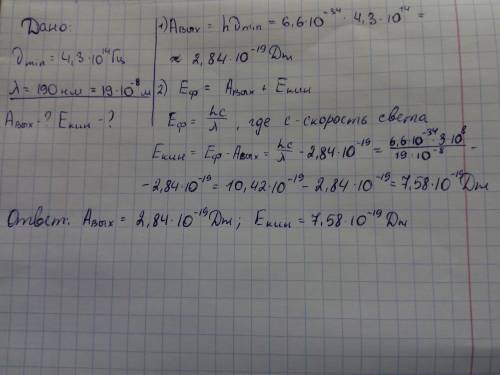 Дано:
ν_min = 4,3·10¹⁴ Гц
λ = 190 нм = 19·10⁻⁸ м
Aвых - ? Eкин - ?
1) Aвых = hν_min = 6,6·10⁻³⁴ · 4,3·10¹⁴ =
≈ 2,84·10⁻¹⁹ Дж
2) Eф = Aвых + Eкин
Eф = hc/λ, где c - скорость света
Eкин = Eф - Aвых = hc/λ - 2,84·10⁻¹⁹ = 6,6·10⁻³⁴·3·10⁸/19·10⁻⁸ -
- 2,84·10⁻¹⁹ = 10,42·10⁻¹⁹ - 2,84·10⁻¹⁹ = 7,58·10⁻¹⁹ Дж
Ответ: Aвых = 2,84·10⁻¹⁹ Дж; Eкин = 7,58·10⁻¹⁹ Дж